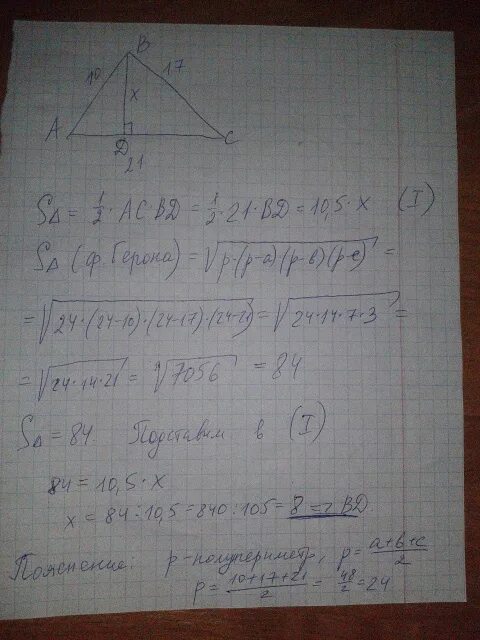 B
10 17
x
A D C
21
S△ = 1/2 · AC·BD = 1/2 · 21 · BD = 10,5 · x (I)
S△ (ф. Герона) = √p·(p-a)(p-в)(p-c) =
= √24·(24-10)·(24-17)·(24-21) = √24·14·7·3 =
= √24·14·21 = √7056 = 84
S△ = 84. Подставим в (I)
84 = 10,5 · x
x = 84 : 10,5 = 840 : 105 = 8 = BD
Пояснение: p - полупериметр, p = a+b+c/2
p = 10+17+21/2 = 48/2 = 24